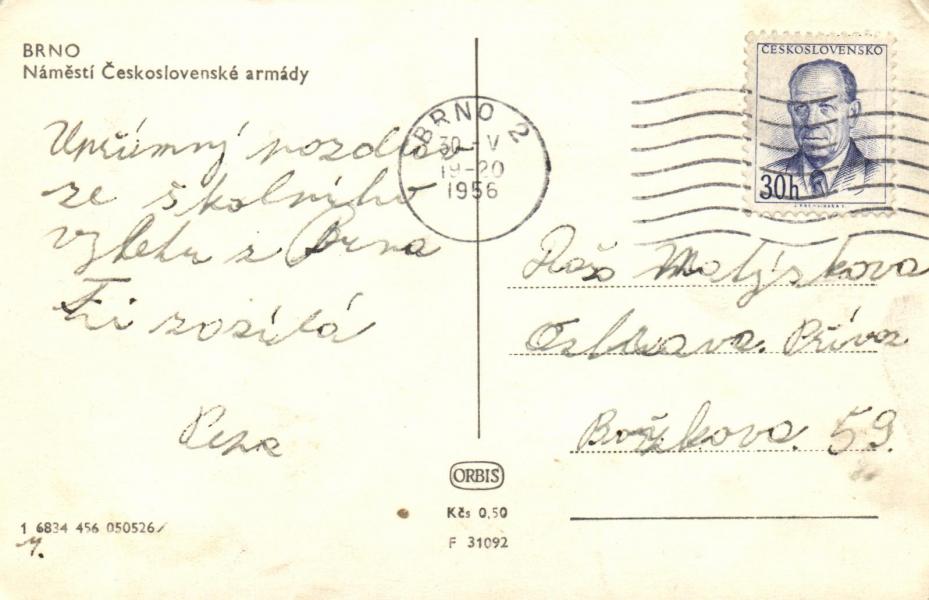 BRNO
Náměstí Československé armády
Upřímný pozdrav
ze školního
výletu z Brna
Ti zasílá
ČESKOSLOVENSKO
30h
BRNO 2
30 - V
19-20
1956
Malýskova
Ostrava. Přívoz
Božkova. 59.
ORBIS
Kčs 0,50
F 31092
1 6834 456 050526/